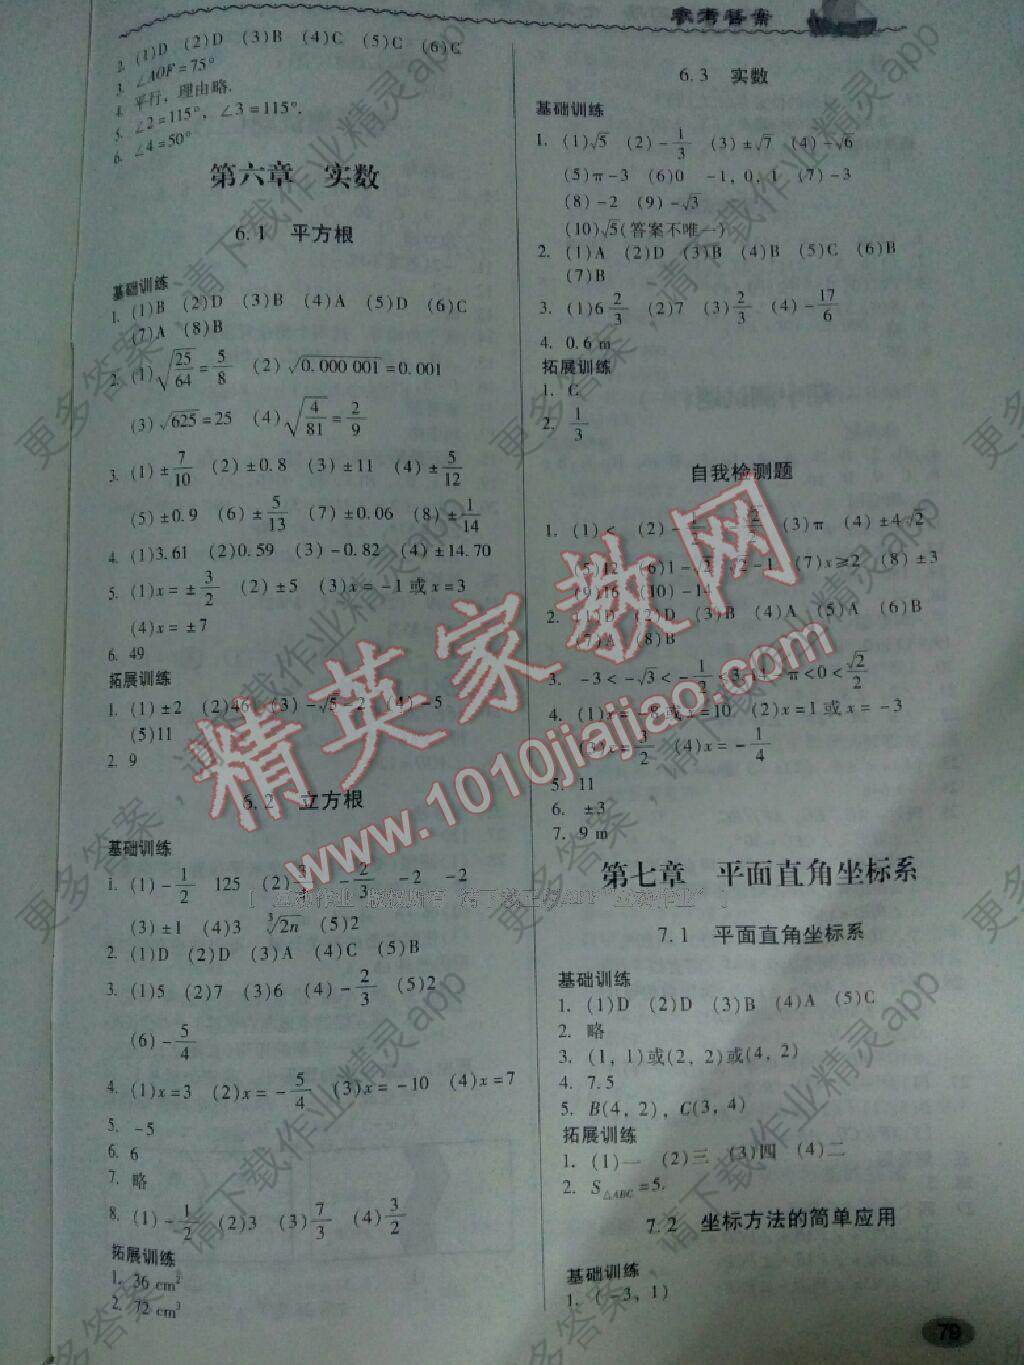 参考答案
2. (1)D (2)D (3)B (4)C (5)C (6)C
3. ∠AOF=75°
4. 平行，理由略.
5. ∠2=115°，∠3=115°.
6. ∠4=50°
第六章 实数
6.1 平方根
基础训练
1. (1)B (2)D (3)B (4)A (5)D (6)C
(7)A (8)B
2. (1)√(25/64)=5/8 (2)√0.000 001=0.001
(3)√625=25 (4)√(4/81)=2/9
3. (1)±7/10 (2)±0.8 (3)±11 (4)±5/12
(5)±0.9 (6)±5/13 (7)±0.06 (8)±1/14
4. (1)3.61 (2)0.59 (3)-0.82 (4)±14.70
5. (1)x=±3/2 (2)±5 (3)x=-1或x=3
(4)x=±7
6. 49
拓展训练
1. (1)±2 (2)46 (3)-√5-2 (4)-5
(5)11
2. 9
6.2 立方根
基础训练
1. (1)-1/2 125 (2) -2/3 -2 -2
(3)±1 (4)3 ∛2n (5)2
2. (1)D (2)D (3)A (4)C (5)B
3. (1)5 (2)7 (3)6 (4)-2/3 (5)2
(6)-5/4
4. (1)x=3 (2)x=-5/4 (3)x=-10 (4)x=7
5. -5
6. 6
7. 略
8. (1)-1/2 (2)3 (3)7/3 (4)3/2
拓展训练
1. 36 cm²
2. 72 cm³
6.3 实数
基础训练
1. (1)√5 (2)-1/3 (3)±√7 (4)-√6
(5)π-3 (6)0 -1，0，1 (7)-3
(8)-2 (9)-√3
(10)√5(答案不唯一)
2. (1)A (2)D (3)B (4)B (5)C (6)B
(7)B
3. (1)6 2/3 (2)7 (3)2/3 (4)-17/6
4. 0.6 m
拓展训练
1. C
2. 1/3
自我检测题
1. (1)< (2)-1/2 √2/2 (3)π (4)±4√2
(5)12 (6)1-√2 √2-1 (7)x≥2 (8)±3
(9)16 (10)-14
2. (1)D (2)D (3)B (4)A (5)A (6)B
(7)A (8)B
3. -3<-√3<-1/2<3.14-π<0<√2/2
4. (1)x=-8或x=10 (2)x=1或x=-3
(3)x=3/2 (4)x=-1/4
5. 11
6. ±3
7. 9 m
第七章 平面直角坐标系
7.1 平面直角坐标系
基础训练
1. (1)D (2)D (3)B (4)A (5)C
2. 略
3. (1，1)或(2，2)或(4，2)
4. 7.5
5. B(4，2)，C(3，4)
拓展训练
1. (1)一 (2)三 (3)四 (4)二
2. S△ABC=5.
7.2 坐标方法的简单应用
基础训练
1. (-3，1)
79
精英家教网
www.1010jiajiao.com
更多答案，请下载作业精灵app